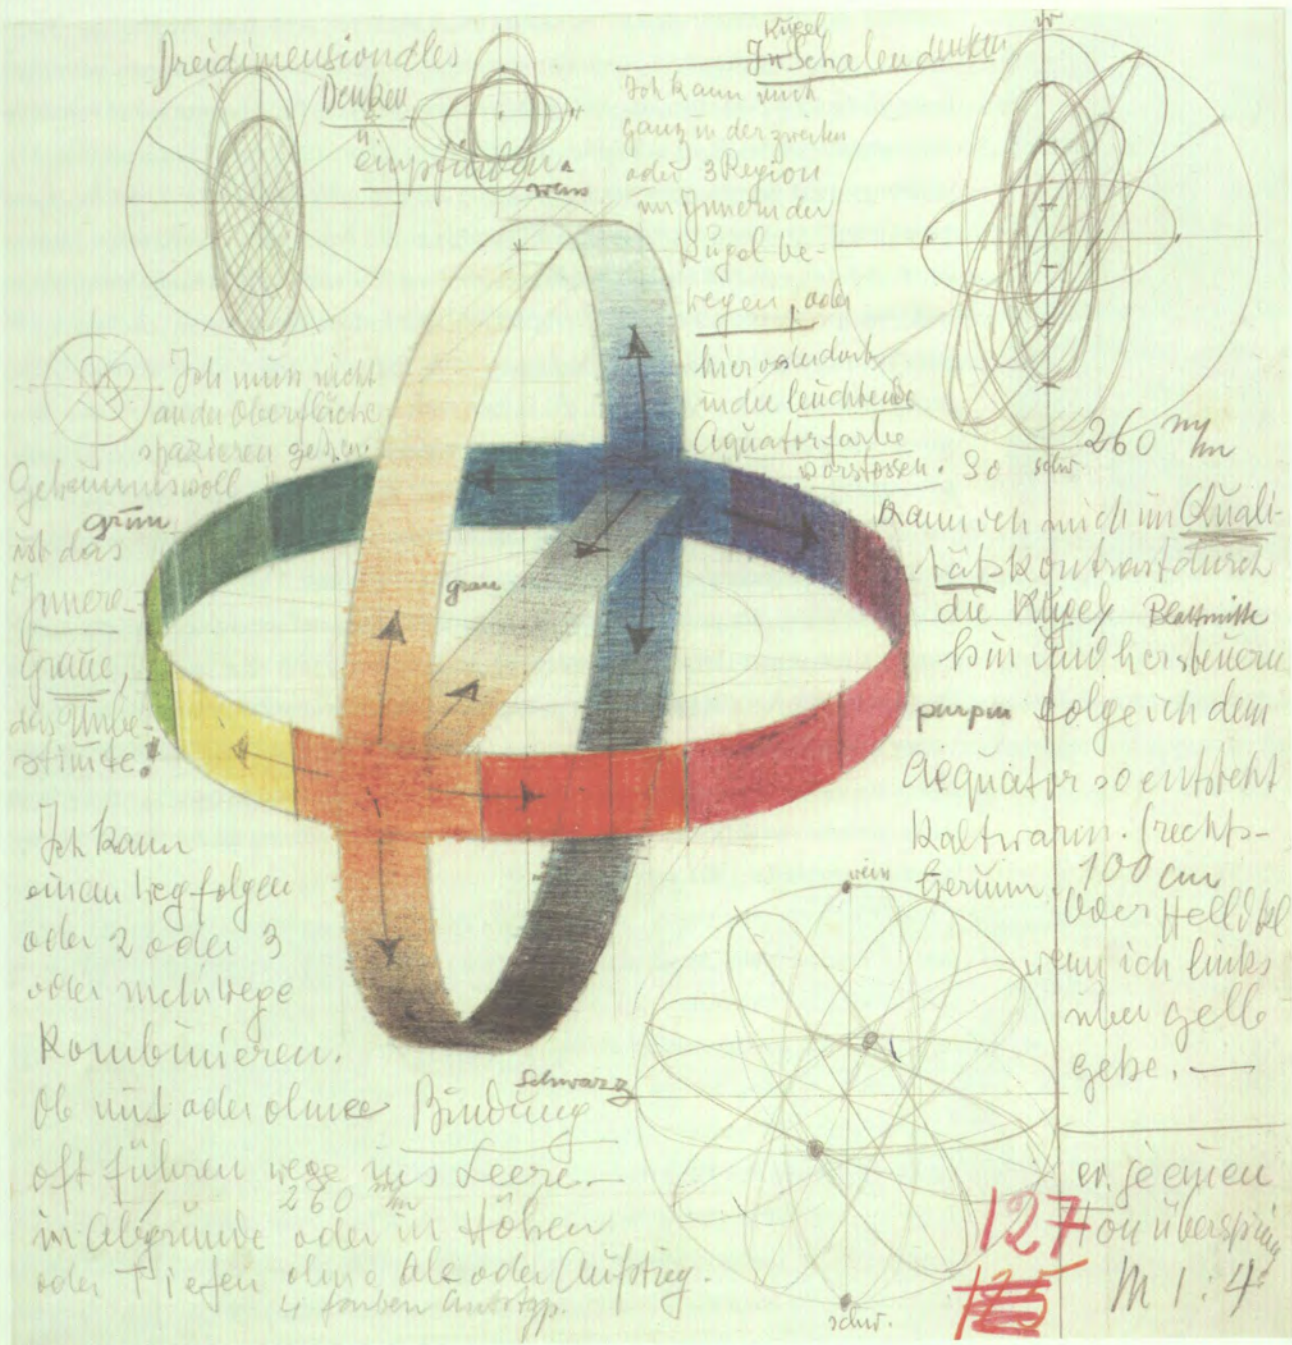 Dreidimensionales
Denken
u.
empfinden.
weiss
Kugel
In Schalen denken
Ich kann mich
ganz in der zweiten
oder 3 Region
im Innern der
Kugel be-
wegen, oder
hier oder dort
in die leuchtende
Aquatorfarbe
vorstossen. So
kann ich mich im Quali-
tätskontrast durch
die Kugel
hin und her steuern
folge ich dem
Aequator so entsteht
Kaltwarm. (rechts-
herum.
oder Helldkl
wenn ich links
über gelb
gehe. —
Blattmitte
100 cm
260 mm
schw.
Ich muss nicht
an der Oberfläche
spazieren gehen
Geheimnisvoll
ist das
Innere-
Graue,
das Unbe-
stimte!
grün
grau
purpur
Schwarz
Ich kann
einen Weg folgen
oder 2 oder 3
oder mehr Wege
Kombinieren.
Ob mit oder ohne Bindung
oft führen wege ins Leere.—
in Abgründe oder in Höhen
oder Tiefen ohne Ab oder Aufstieg.
260 mm
4 farben
weiss
schw.
je einen
Ton überspring
127
125
M 1:4